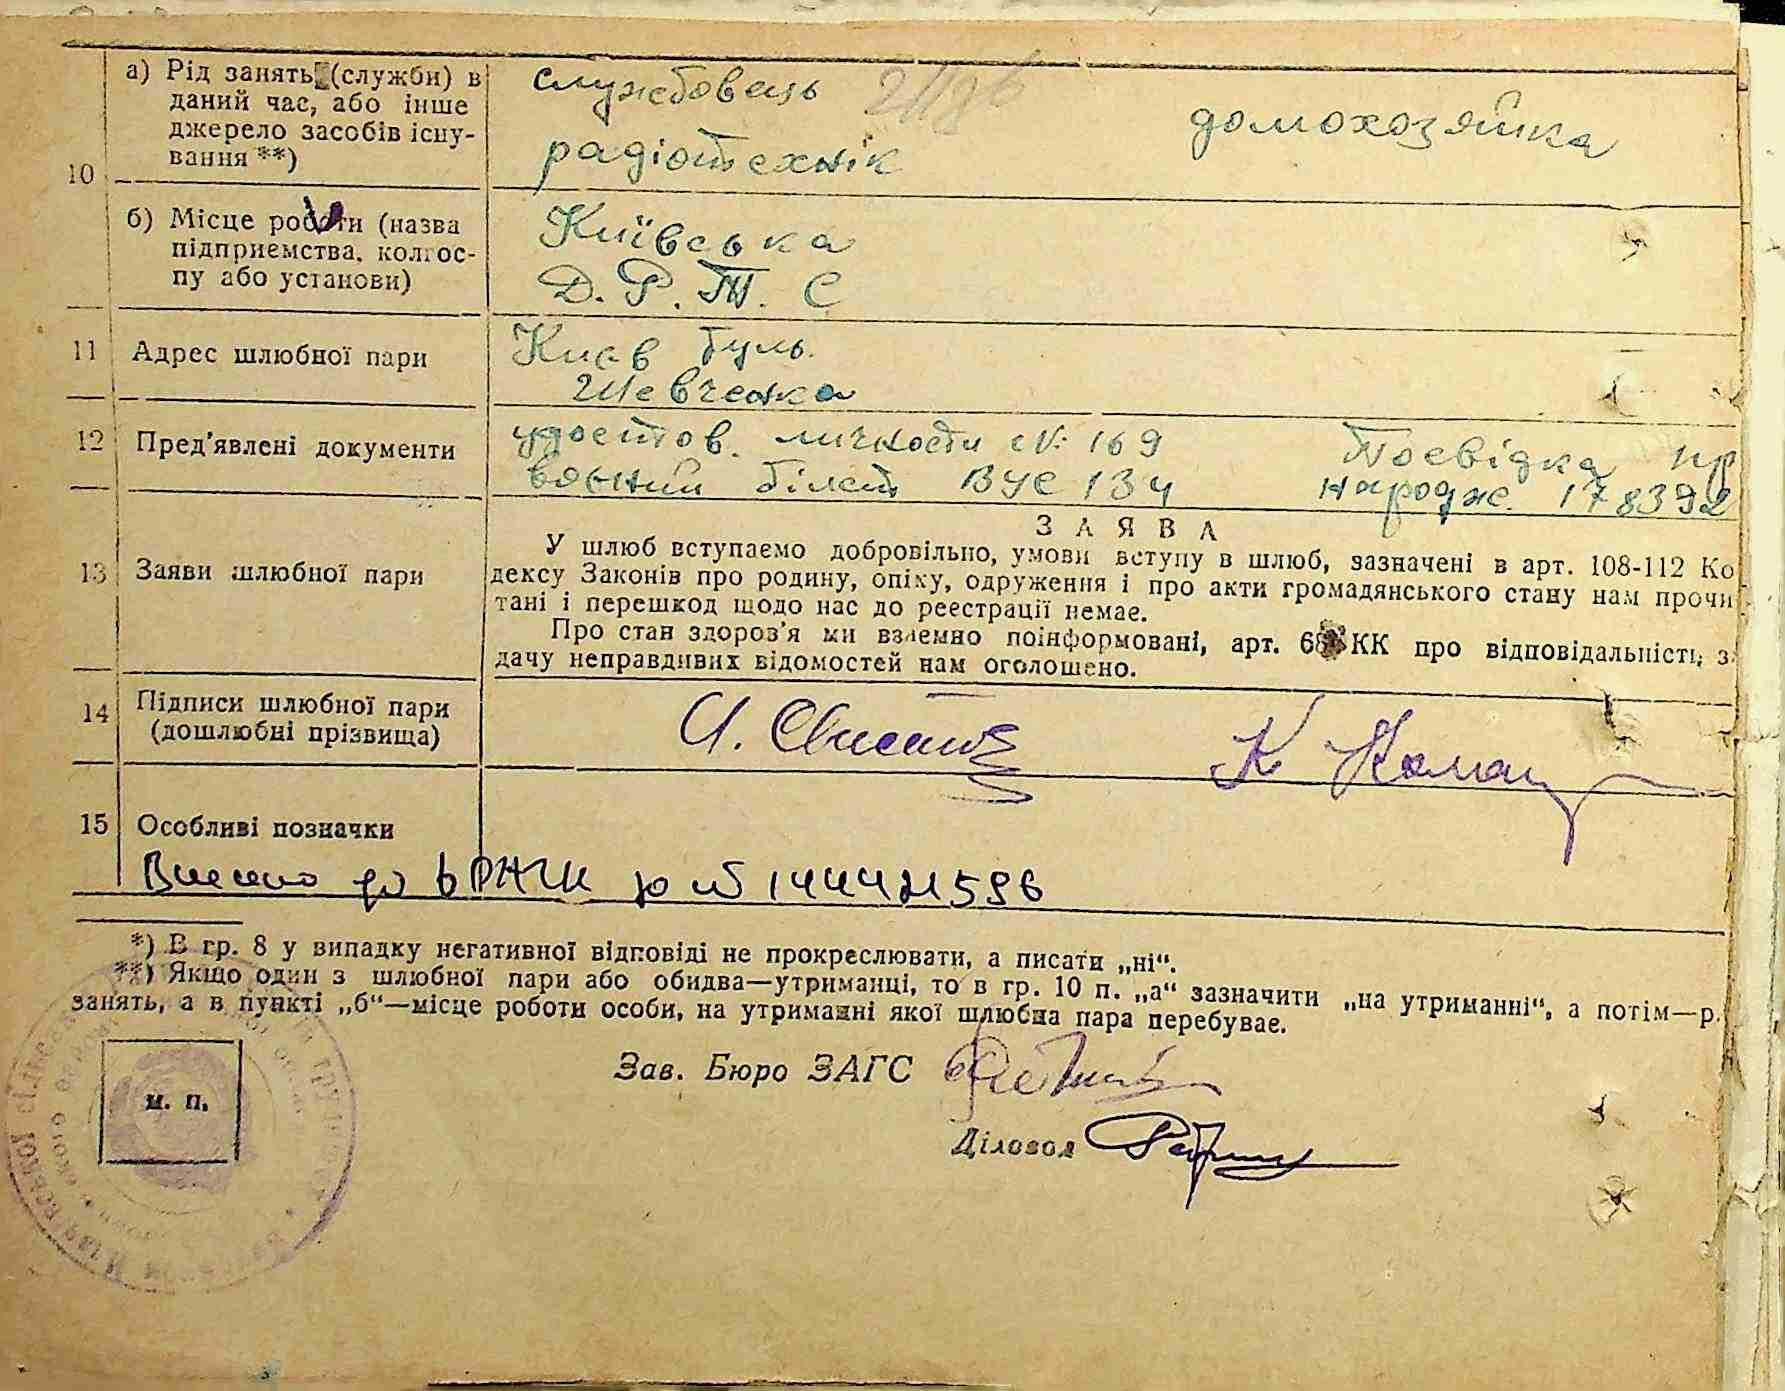 10
а) Рід занять (служби) в
даний час, або інше
джерело засобів існу-
вання **)
службовець
радіотехнік
домохозяйка
б) Місце роботи (назва
підприемства, колгос-
пу або установи)
Київська
Д. Р. Т. С
11 Адрес шлюбної пари
Київ буль.
Шевченка
12 Пред'явлені документи
удостов. личности №: 169
воєний білет ВУС 134
Посвідка пр
народж. 178392
13 Заяви шлюбної пари
ЗАЯВА
У шлюб вступаємо добровільно, умови вступу в шлюб, зазначені в арт. 108-112 Ко
дексу Законів про родину, опіку, одруження і про акти громадянського стану нам прочи
тані і перешкод щодо нас до реестрації немае.
Про стан здоров'я ми взаемно поінформовані, арт. КК про відповідальність з
дачу неправдивих відомостей нам оголошено.
14 Підписи шлюбної пари
(дошлюбні прізвища)
К
15 Особливі позначки
Внесено до 144421596
*) В гр. 8 у випадку негативної відповіді не прокреслювати, а писати „ні“.
**) Якщо один з шлюбної пари або обидва—утриманці, то в гр. 10 п. „а“ зазначити „на утриманні“, а потім—р.
занять, а в пункті „б“—місце роботи особи, на утриманні якої шлюбна пара перебувае.
Зав. Бюро ЗАГС
м. п.
Діловод